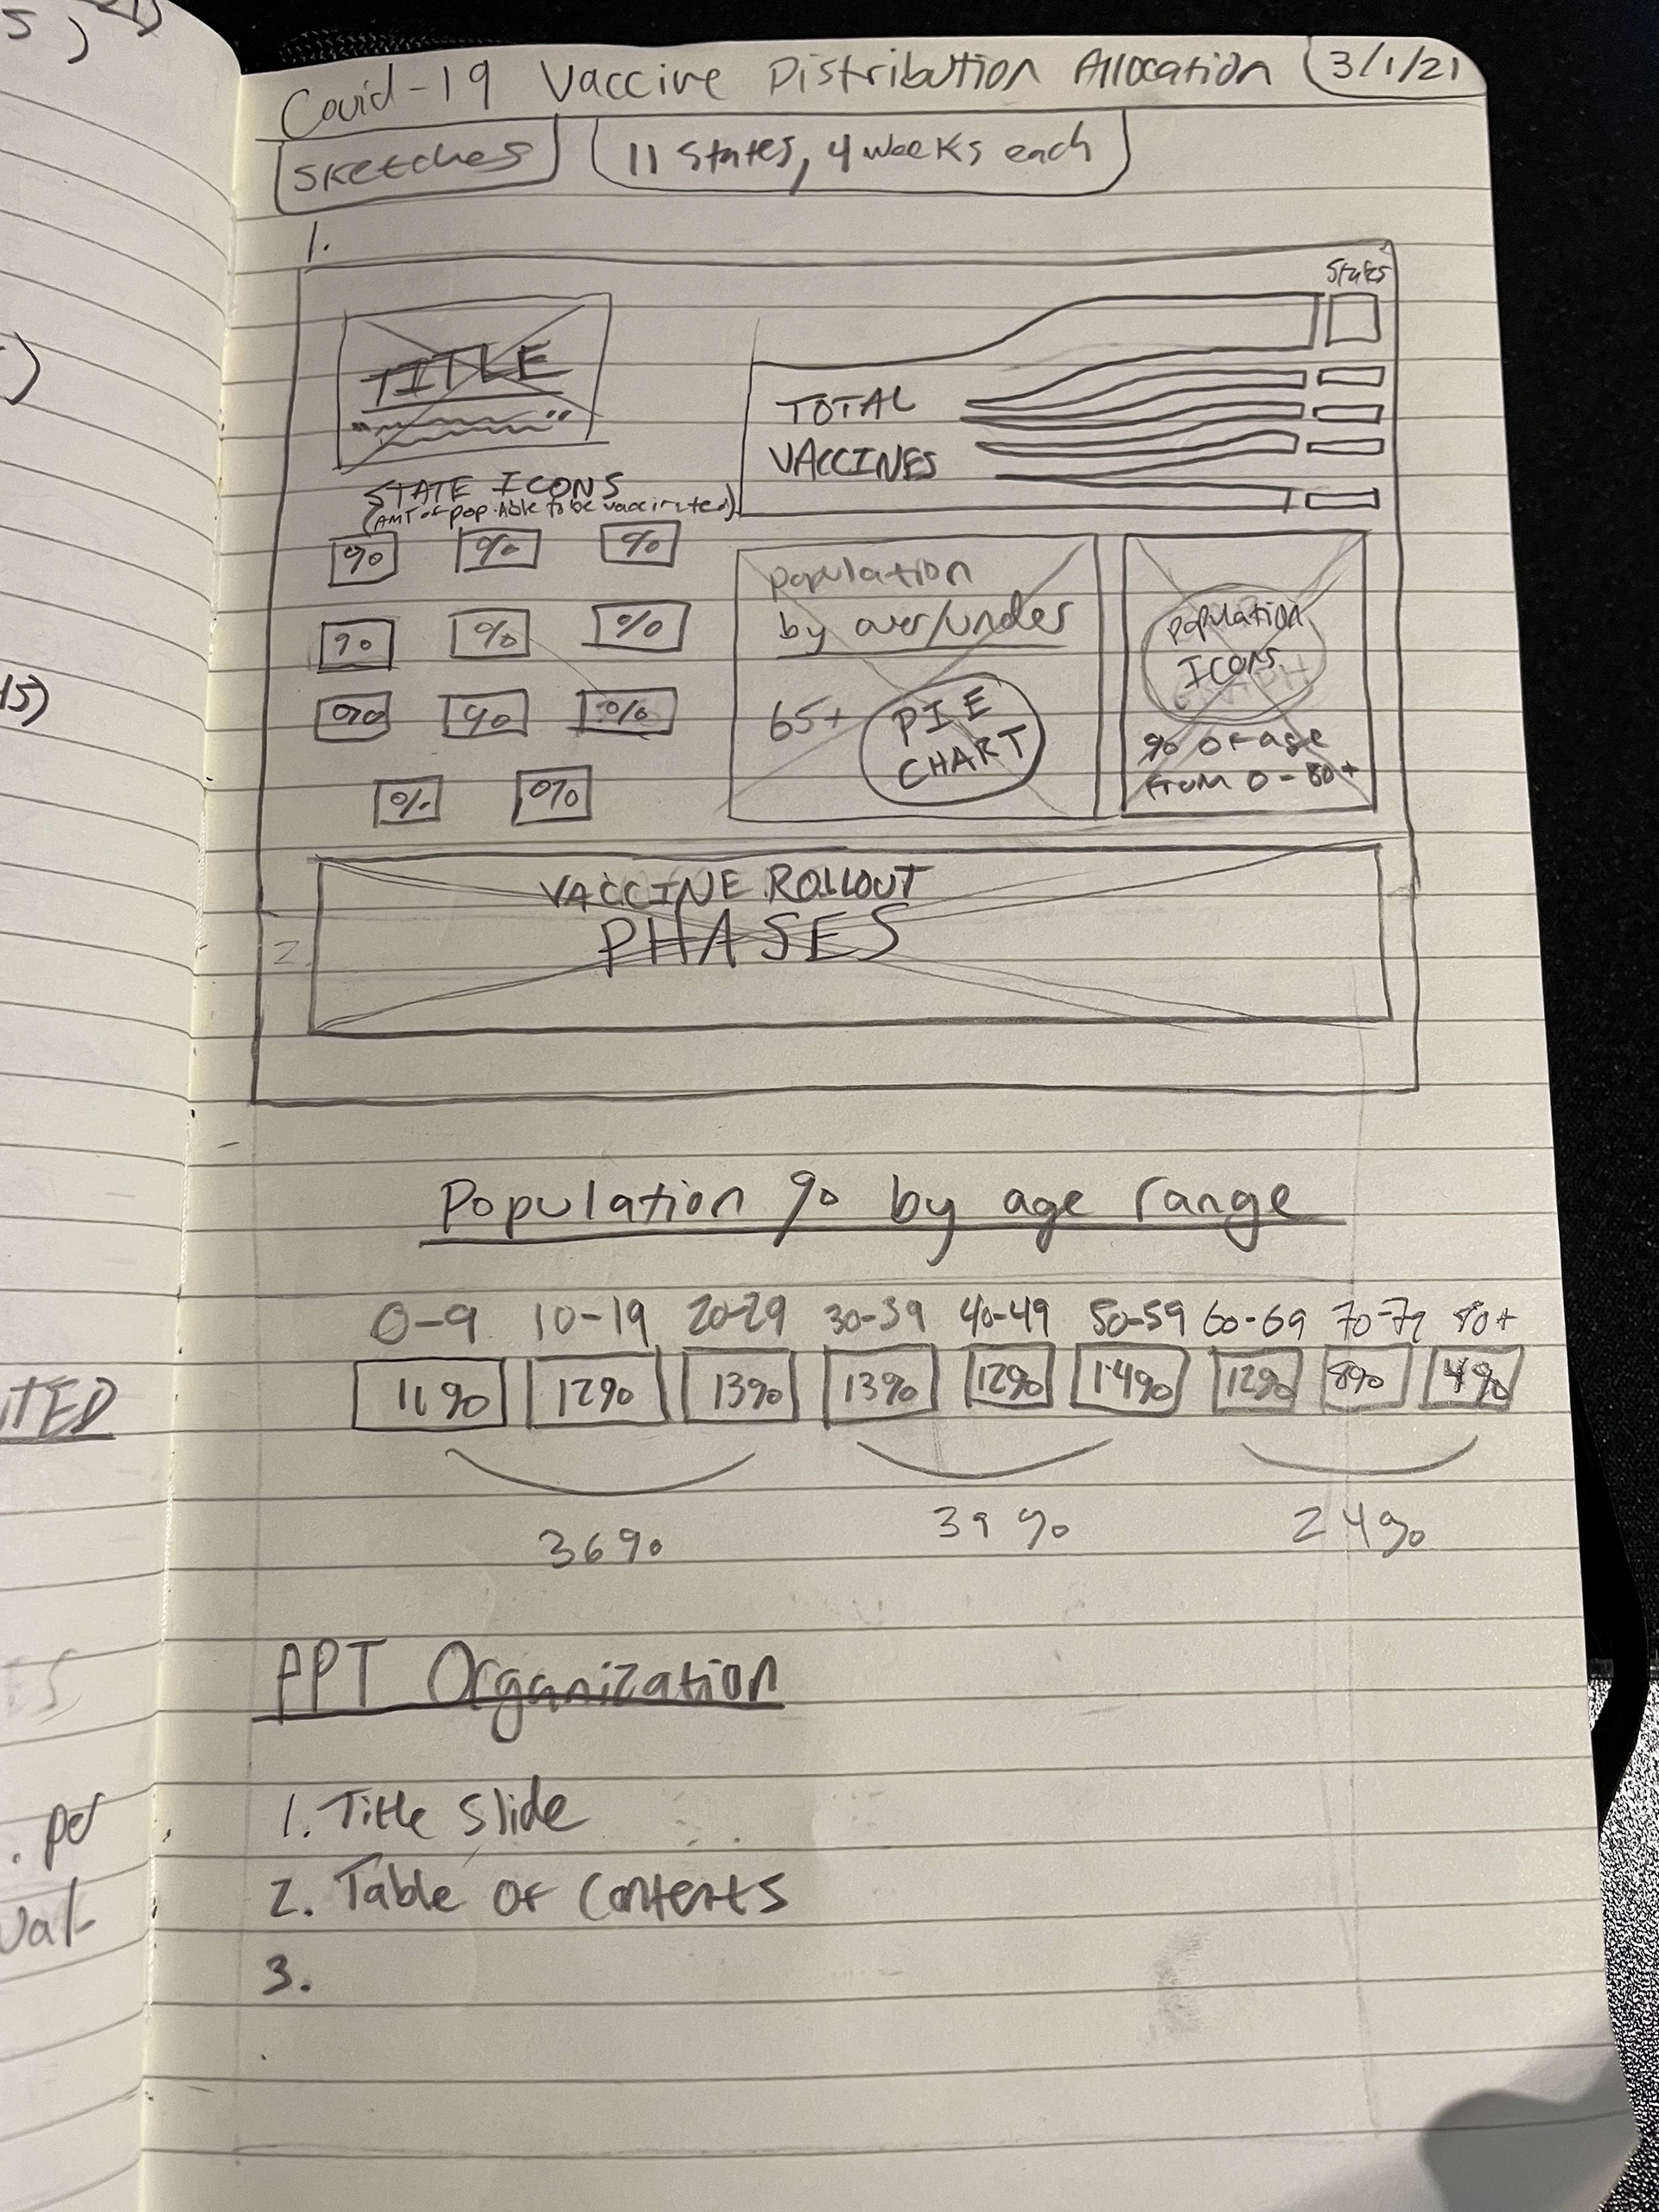 Covid-19 Vaccine Distribution Allocation 3/1/21
Sketches 11 States, 4 weeks each
1.
States
TITLE
TOTAL
VACCINES
STATE ICONS
(AMT of pop. Able to be vaccinated)
% % %
% % %
% % %
% %
population
by over/under
65+ PIE
CHART
Population
ICONS
% of age
from 0-80+
VACCINE ROLLOUT
PHASES
2.
Population % by age range
0-9 10-19 20-29 30-39 40-49 50-59 60-69 70-79 80+
11% 12% 13% 13% 12% 14% 12% 8% 4%
36% 39% 24%
PPT Organization
1. Title Slide
2. Table of Contents
3.